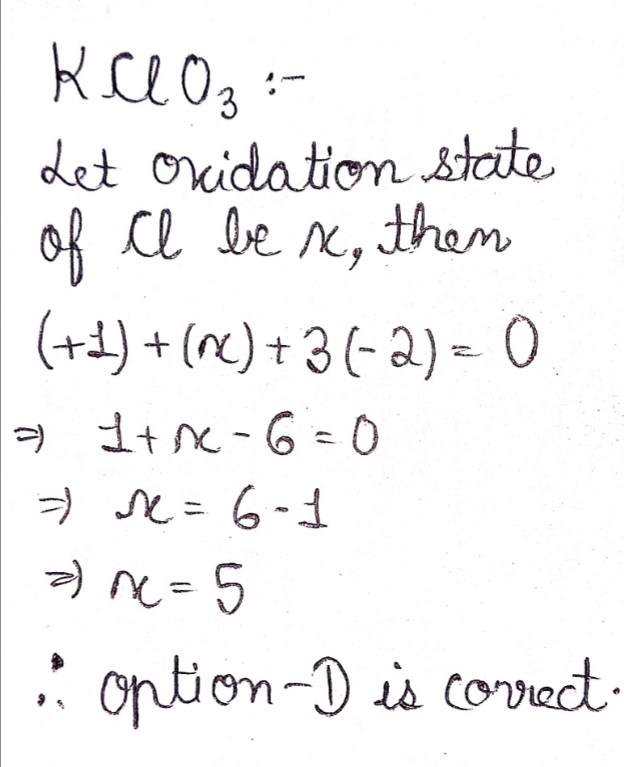 KClO₃ :-
Let oxidation state
of Cl be x, then
(+1) + (x) + 3(-2) = 0
⇒ 1 + x - 6 = 0
⇒ x = 6 - 1
⇒ x = 5
∴ option-D is correct.